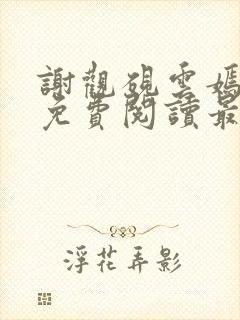 謝觀硯雲嫣
免費閱讀最
浮花弄影